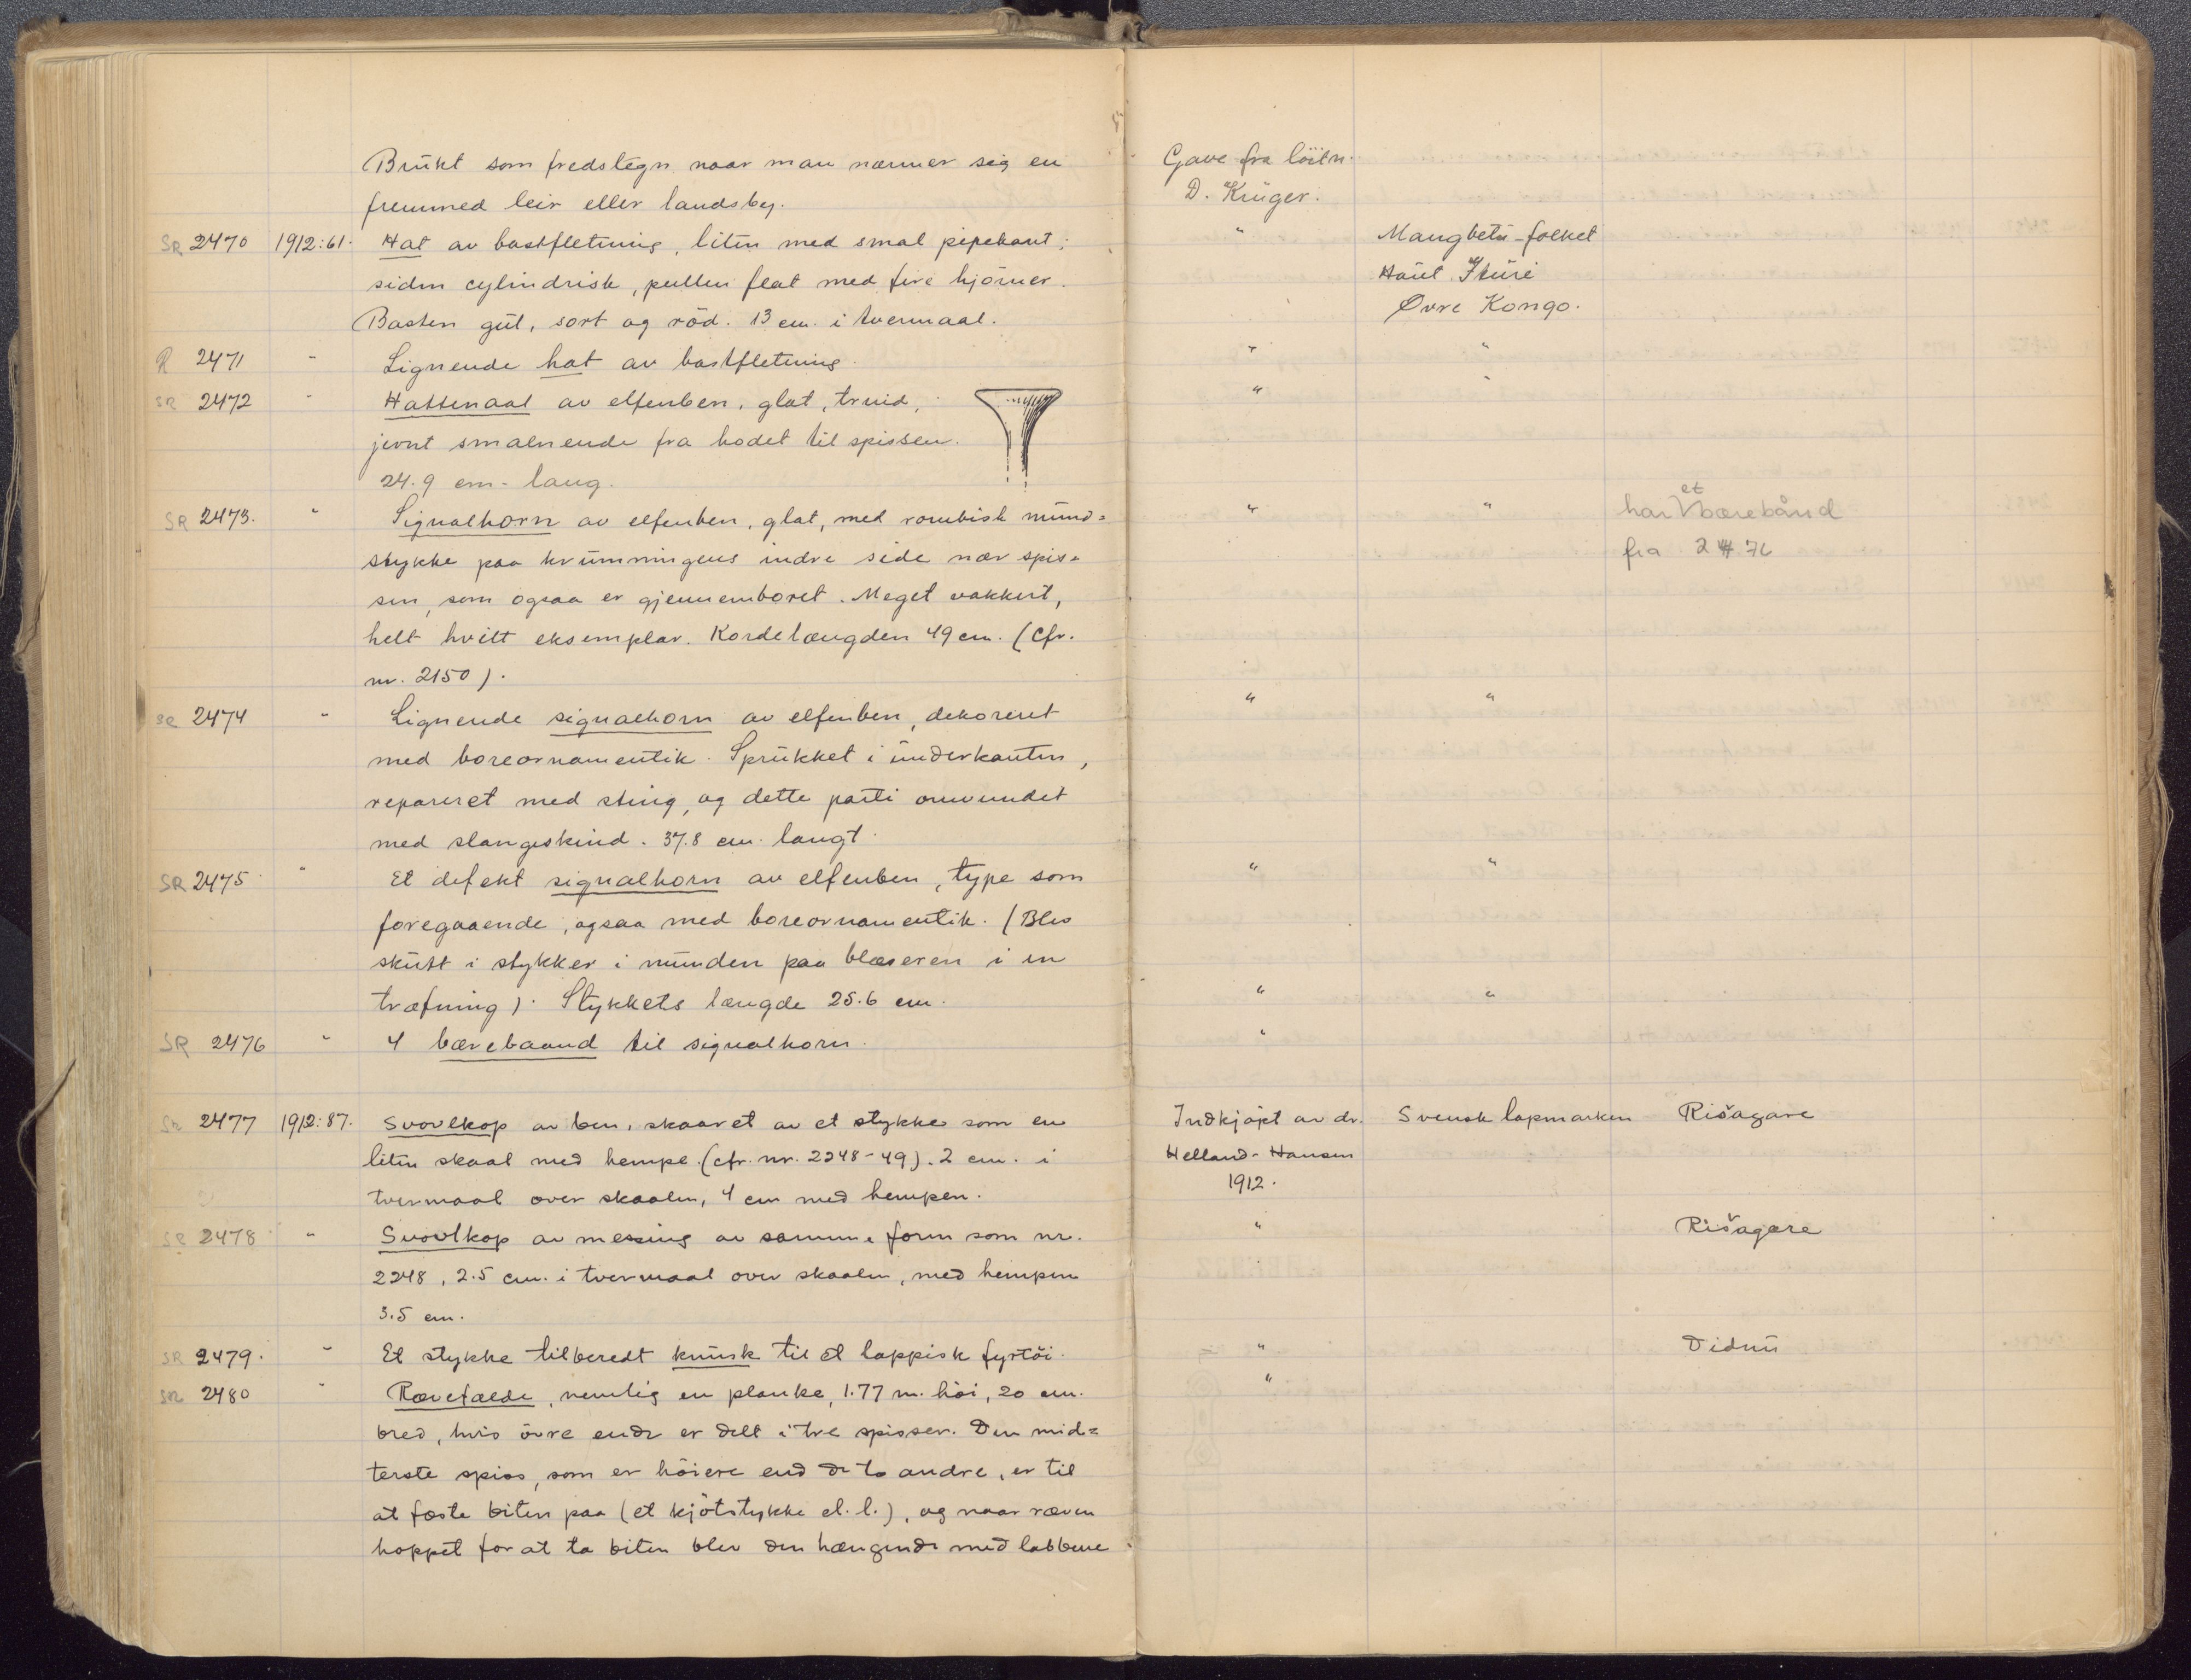 Brukt som fredstegn naar man nærmer sig en Gave fra löitn.
fremmed leir eller landsby. D. Krüger.
SR 2470 1912:61. Hat av bastfletning, liten med smal pipekant; " Mangbetu-folket
siden cylindrisk, pullen flat med fire hjörner. Haut Ituri
Basten gul, sort og röd. 13 cm. i tvermaal. Øvre Kongo.
R 2471 " Lignende hat av bastfletning. " "
SR 2472 " Hattenaal av elfenben, glat, trind, " "
jevnt smalnende fra hodet til spissen.
24.9 cm. lang.
SR 2473. " Signalhorn av elfenben, glat, med rombisk mund= " " har et bærebånd
stykke paa krumningens indre side nær spis= fra 2476
sen, som ogsaa er gjennemboret. Meget vakkert,
helt hvitt eksemplar. Kordelængden 49 cm. (Cfr.
nr. 2150).
SR 2474 " Lignende signalhorn av elfenben, dekoreret " "
med boreornamentik. Sprukket i underkanten,
repareret med sting, og dette parti omvundet
med slangeskind. 37.8 cm. langt.
SR 2475 " Et defekt signalhorn av elfenben, type som " "
foregaaende, ogsaa med boreornamentik. (Blev
skutt i stykker i munden paa blæseren i en
træfning). Stykkets længde 25.6 cm. " "
SR 2476 " 4 bærebaand til signalhorn. "
SR 2477 1912:87. Svovlkop av ben, skaaret av et stykke som en Indkjøpt av dr. Svensk lapmarken Rišagare
liten skaal med hempe. (cfr. nr. 2248-49). 2 cm. i Helland-Hansen
tvermaal over skaalen, 4 cm med hempen. 1912.
SR 2478 " Svovlkop av messing av samme form som nr. " Rišagare
2248, 2.5 cm. i tvermaal over skaalen, med hempen
3.5 cm.
SR 2479. " Et stykke tilberedt knusk til et lappisk fyrtöi. " Didnu
SR 2480 " Rævefælde, nemlig en planke, 1.77 m. höi, 20 cm. "
bred, hvis övre ende er delt i tre spisser. Den mid=
terste spiss, som er höiere end de to andre, er til
at fæste biten paa (et kjötstykke el. l.), og naar ræven
hoppet for at ta biten blev den hængende med labbene